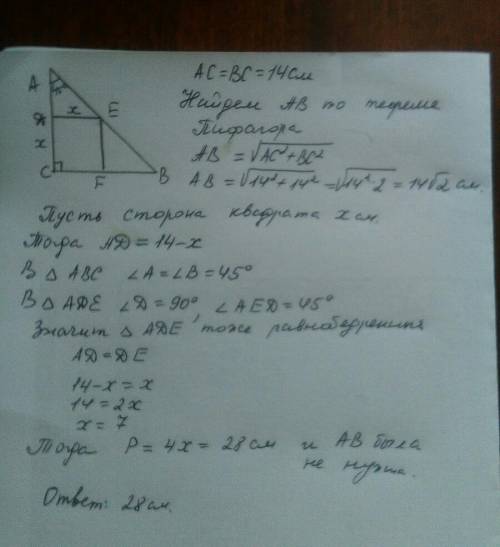 A
D
x
E
x
C
F
B
AC = BC = 14 см
Найдем AB по теореме
Пифагора
AB = √AC²+BC²
AB = √14²+14² = √14²·2 = 14√2 см.
Пусть сторона квадрата x см.
Тогда AD = 14-x
В △ ABC ∠A = ∠B = 45°
В △ ADE ∠D = 90°, ∠AED = 45°
Значит △ ADE тоже равнобедренный
AD = DE
14-x = x
14 = 2x
x = 7
Тогда P = 4x = 28 см и AB была
не нужна.
Ответ: 28 см.